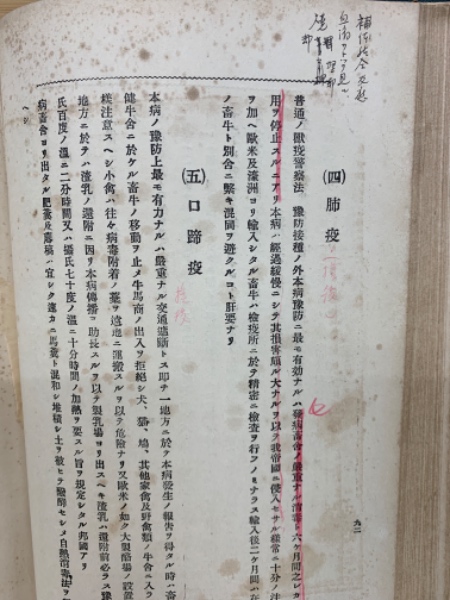 (四)肺疫
普通ノ獸疫警察法 豫防接種ノ外本病豫防ニ最モ有効ナルハ發病畜舍ノ嚴重ナル消毒ト六ケ月間之レカ
用ヲ停止スルニアリ本病ハ經過緩慢ニシテ其損害頗ル大ナルヲ以テ我帝國ニ侵入セサル樣常ニ十分ノ注
ヲ加ヘ歐米及濠洲ヨリ輸入シタル畜牛ハ檢疫所ニ於テ精密ニ檢査ヲ行フノミナラス輸入後二ケ月間ハ在
ノ畜牛ト別舍ニ繫キ混同ヲ避クルコト肝要ナリ
(五)口蹄疫
本病ノ豫防上最モ有力ナルハ嚴重ナル交通遮斷トス即チ一地方ニ於テ本病發生ノ報告ヲ得タル時ハ畜
健牛舍ニ於ケル畜牛ノ移動ヲ止メ牛馬商ノ出入ヲ拒絕シ犬、猫、鳩、其他家禽及野禽類ノ牛舍ニ入ラ
樣注意スヘシ小禽ハ往々病毒附着ノ藁ヲ遠地ニ運搬スルヲ以テ危險ナリ又歐米ノ如ク大製酪場ノ設置
地方ニ於テハ渣乳ノ還附ニ因リ本病傳播ヲ助長スルヲ以テ製乳場ヨリ出スヘキ渣乳ハ還附前必ラス攝
氏百度ノ溫ニ二分時間又ハ攝氏七十度ノ溫ニ十分時間ノ加熱ヲ要スル旨ヲ規定シタル邦國アリ
病畜舍ヨリ出タル肥糞及藁稿ハ宜シク速カニ馬糞ト混和シ堆積シ土ヲ被ヒテ醱酵セシメ自熱消毒法ヲ
ヘシ
九二